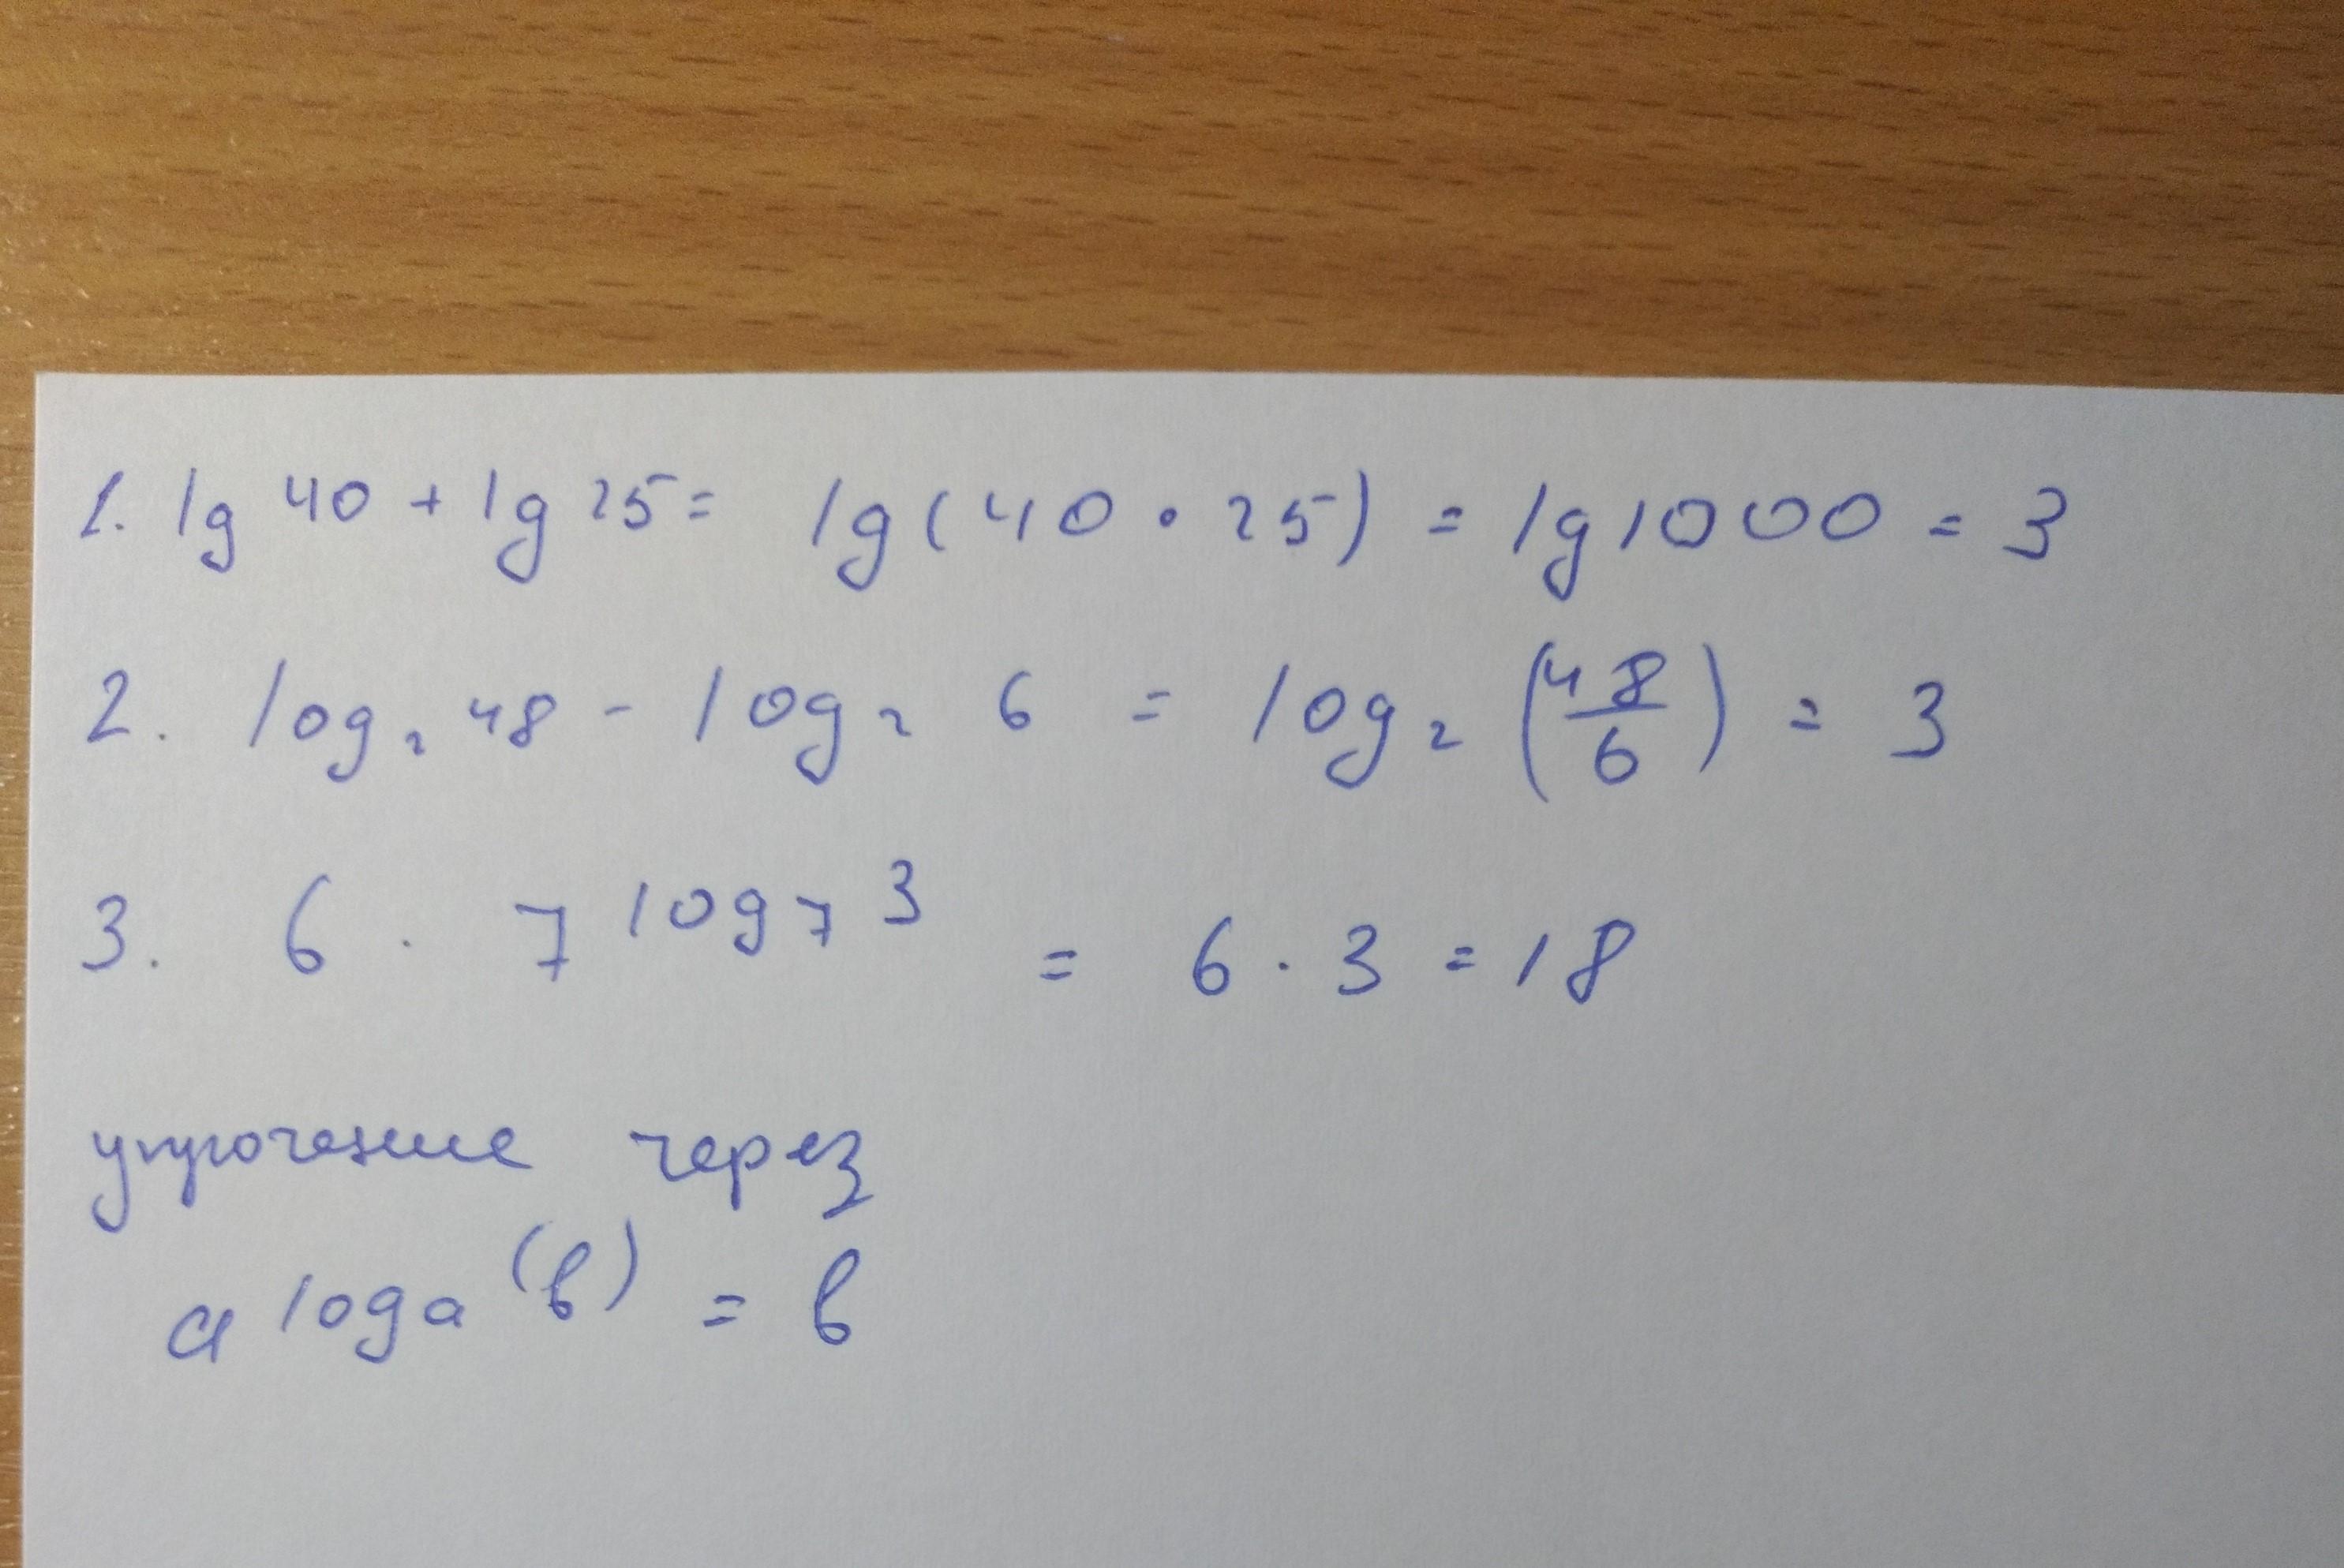 1. lg 40 + lg 25 = lg(40 • 25) = lg 1000 = 3
2. log₂ 48 - log₂ 6 = log₂ (48/6) = 3
3. 6 · 7^log₇ 3 = 6 · 3 = 18
упрочение через
a^logₐ(b) = b